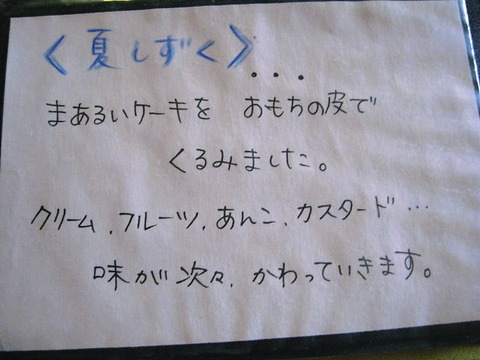 〈夏しずく〉...
まあるいケーキを　おもちの皮で
くるみました。
クリーム，フルーツ，あんこ，カスタード…
味が次々，かわっていきます。